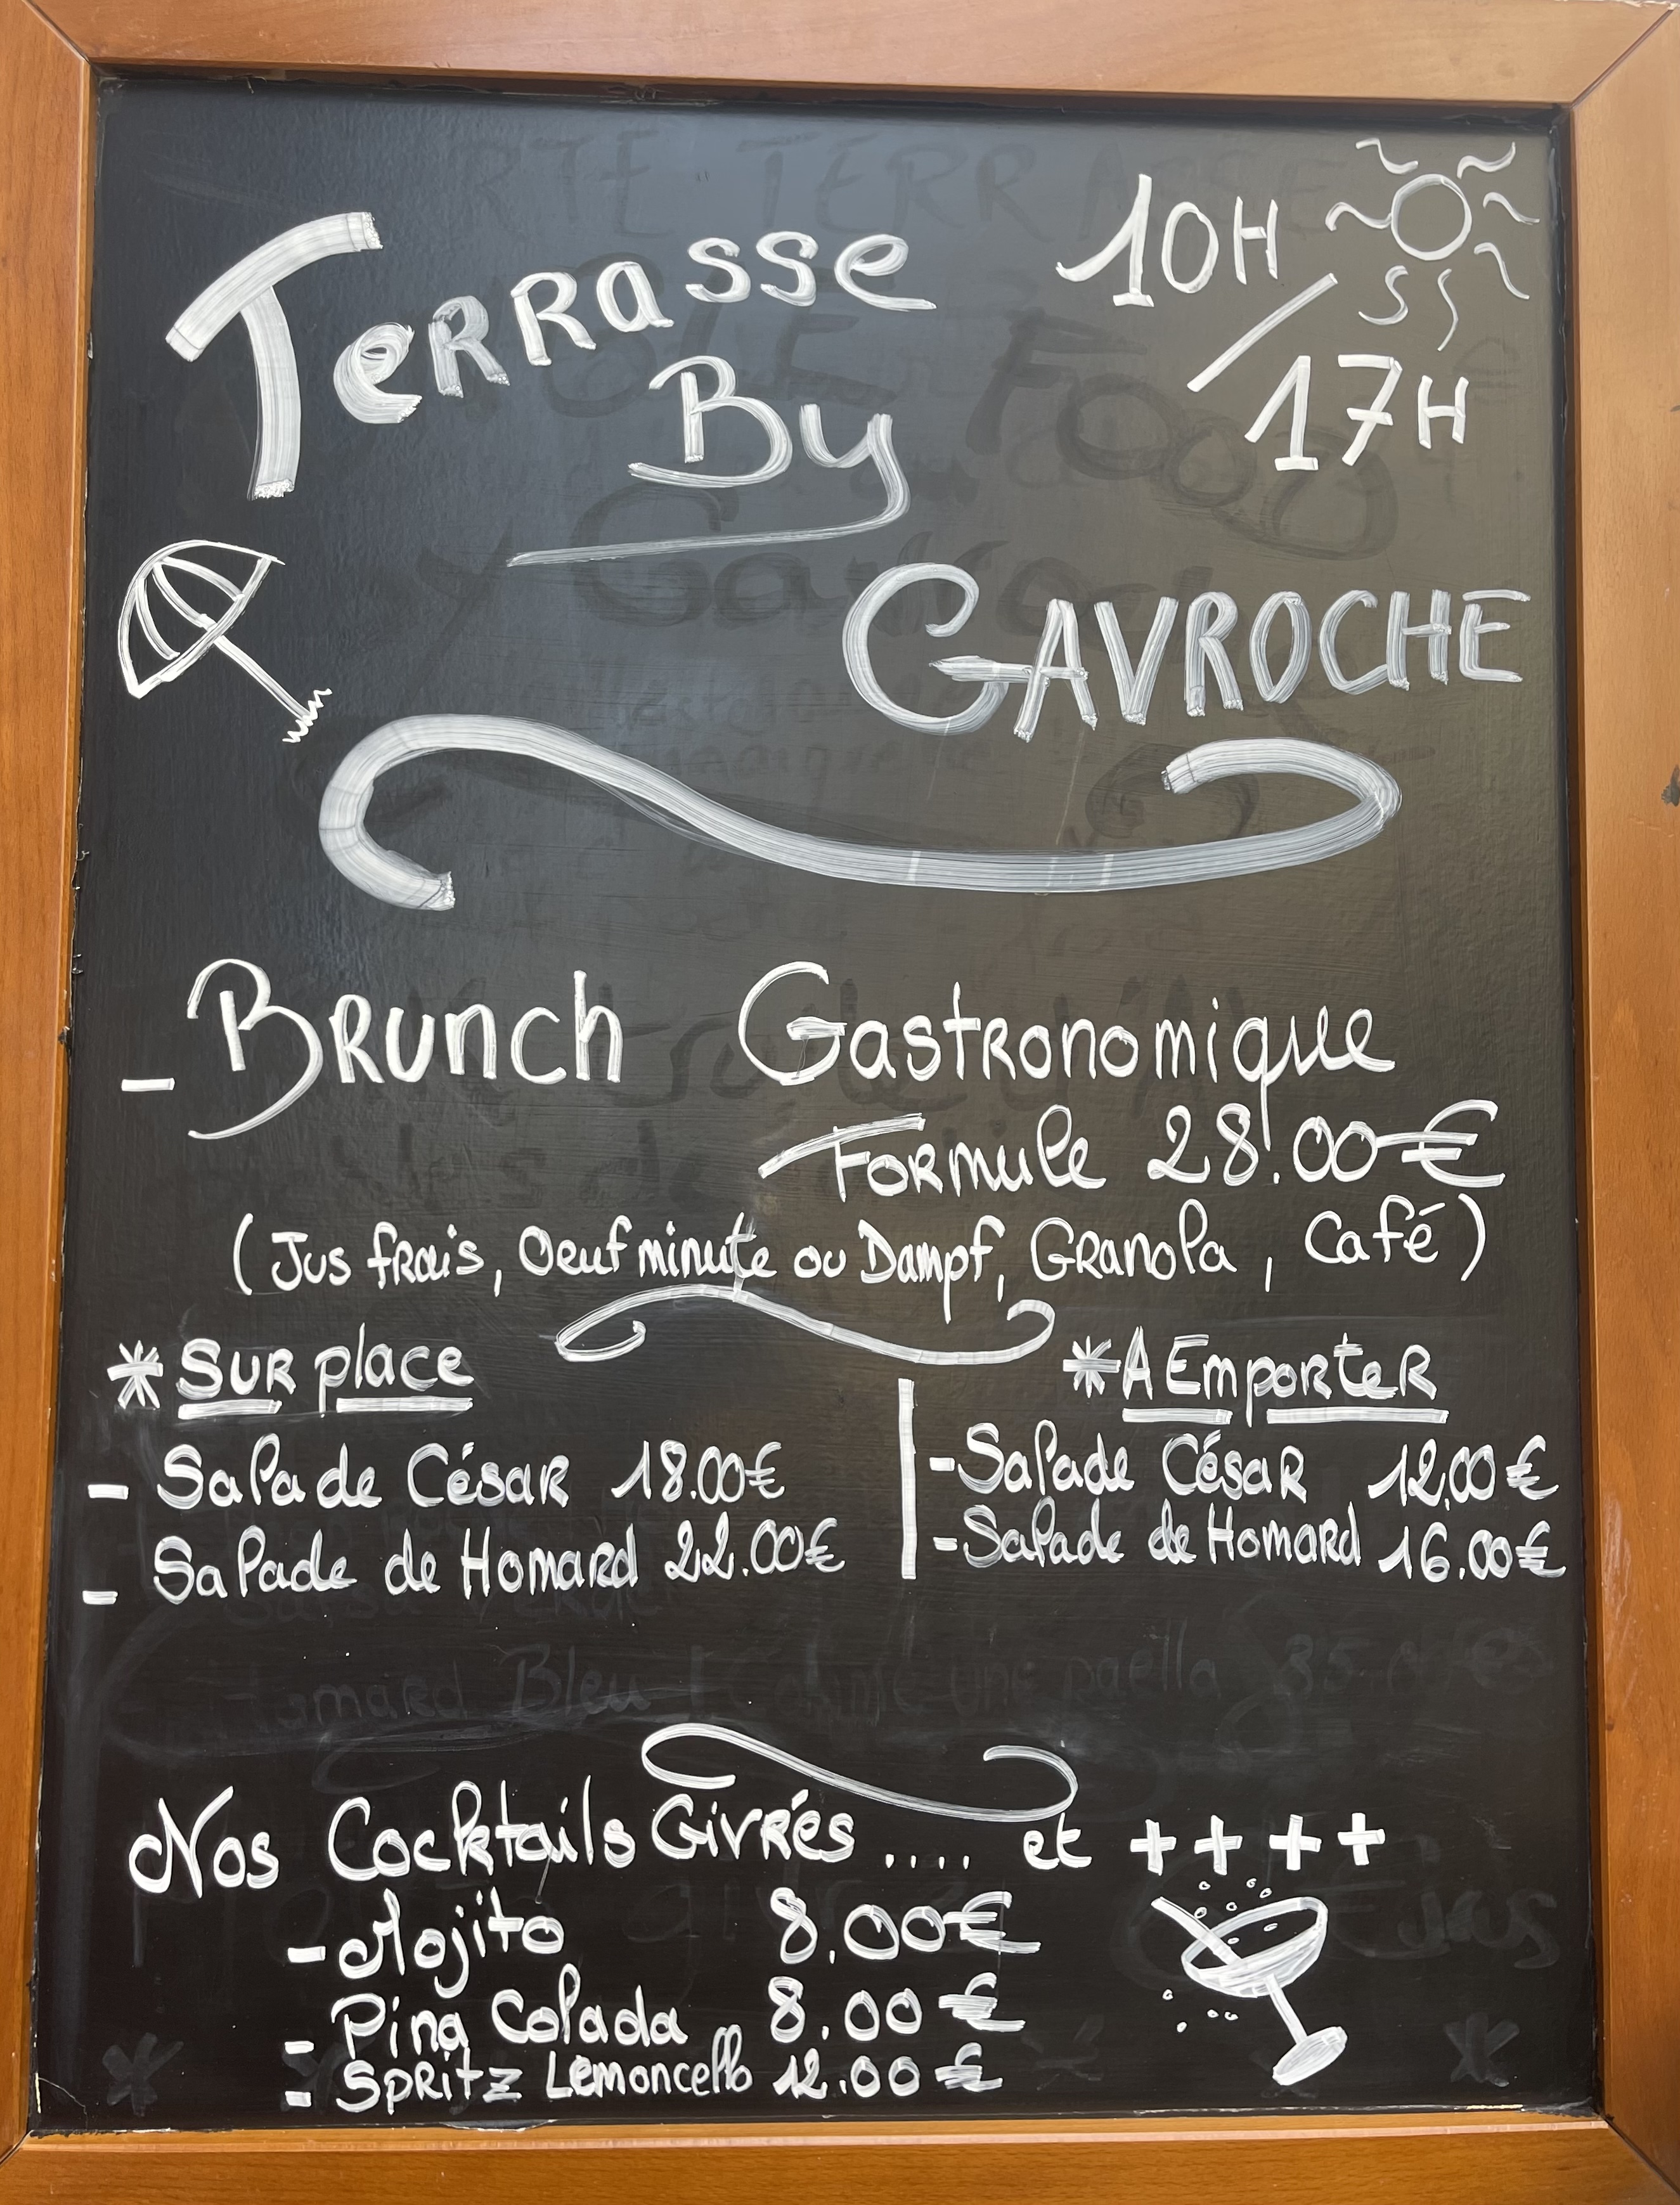 Terrasse
By
GAVROCHE
10H
/
17H
- Brunch Gastronomique
Formule 28.00€
(Jus frais, Oeuf minute ou Dampf, Granola, Café)
* Sur place
- Salade César 18.00€
- Salade de Homard 22.00€
* A Emporter
- Salade César 12.00€
- Salade de Homard 16.00€
Nos Cocktails Givrés .... et ++++
- Mojito 8.00€
- Pina Colada 8.00€
- Spritz Lemoncello 12.00€